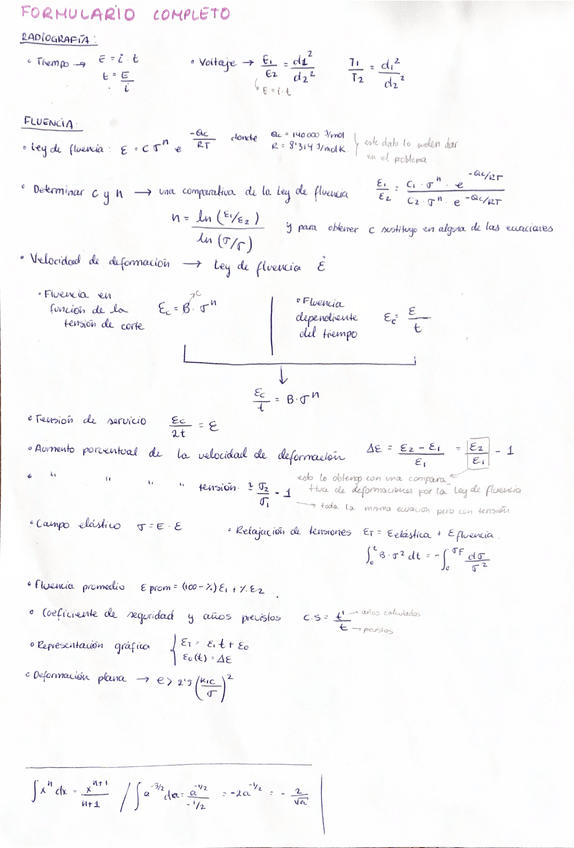 FORMULARIO COMPLETO
RADIOGRAFÍA:
• Tiempo → E = i · t
t = E/i
• Voltaje → E₁/E₂ = d1²/d₂²
T₁/T₂ = d₁²/d₂²
↳ E = i · t
FLUENCIA:
• Ley de fluencia: ε = C σⁿ e^(-Qc/RT) donde Qc = 140000 J/mol
R = 8'314 J/mol K
este dato lo suelen dar en el problema
• Determinar C y n → una comparativa de la ley de fluencia ε₁/ε₂ = C₁ · σⁿ · e^(-Qc/RT) / C₂ · σⁿ · e^(-Qc/RT)
n = ln(ε₁/ε₂) / ln(σ/σ) y para obtener C sustituyo en alguna de las ecuaciones
• Velocidad de deformación → Ley de fluencia ε̇
• Fluencia en función de la tensión de corte εc = B · σⁿ
→ C
• Fluencia dependiente del tiempo εc = ε/t
εc/t = B · σⁿ
• Tensión de servicio εc/2t = ε
• Aumento porcentual de la velocidad de deformación Δε = (ε₂ - ε₁)/ε₁ = ε₂/ε₁ - 1
esto lo obtengo con una comparativa de deformaciones por la ley de fluencia
• " " " " tensión = σ₂/σ₁ - 1
→ toda la misma ecuación pero con tensión
• Campo elástico σ = E · ε
• Relajación de tensiones ET = Eelástica + Efluencia.
∫₀ᵗ B · σ² dt = -∫₀^σF dσ/σ²
• Fluencia promedio ε prom = (100 - %) ε₁ + % ε₂.
• Coeficiente de seguridad y años previstos C.S = t'/t
→ años calculados
→ previstos
• Representación gráfica { ET = ε₁ t + ε₀
ε₀(t) = Δε
• Deformación plana → e > 2'5 (KIC/σ)²
∫xⁿ dx = xⁿ⁺¹/(n+1) / ∫a^(-3/2) da = a^(-1/2)/(-1/2) = -2a^(-1/2) = -2/√a